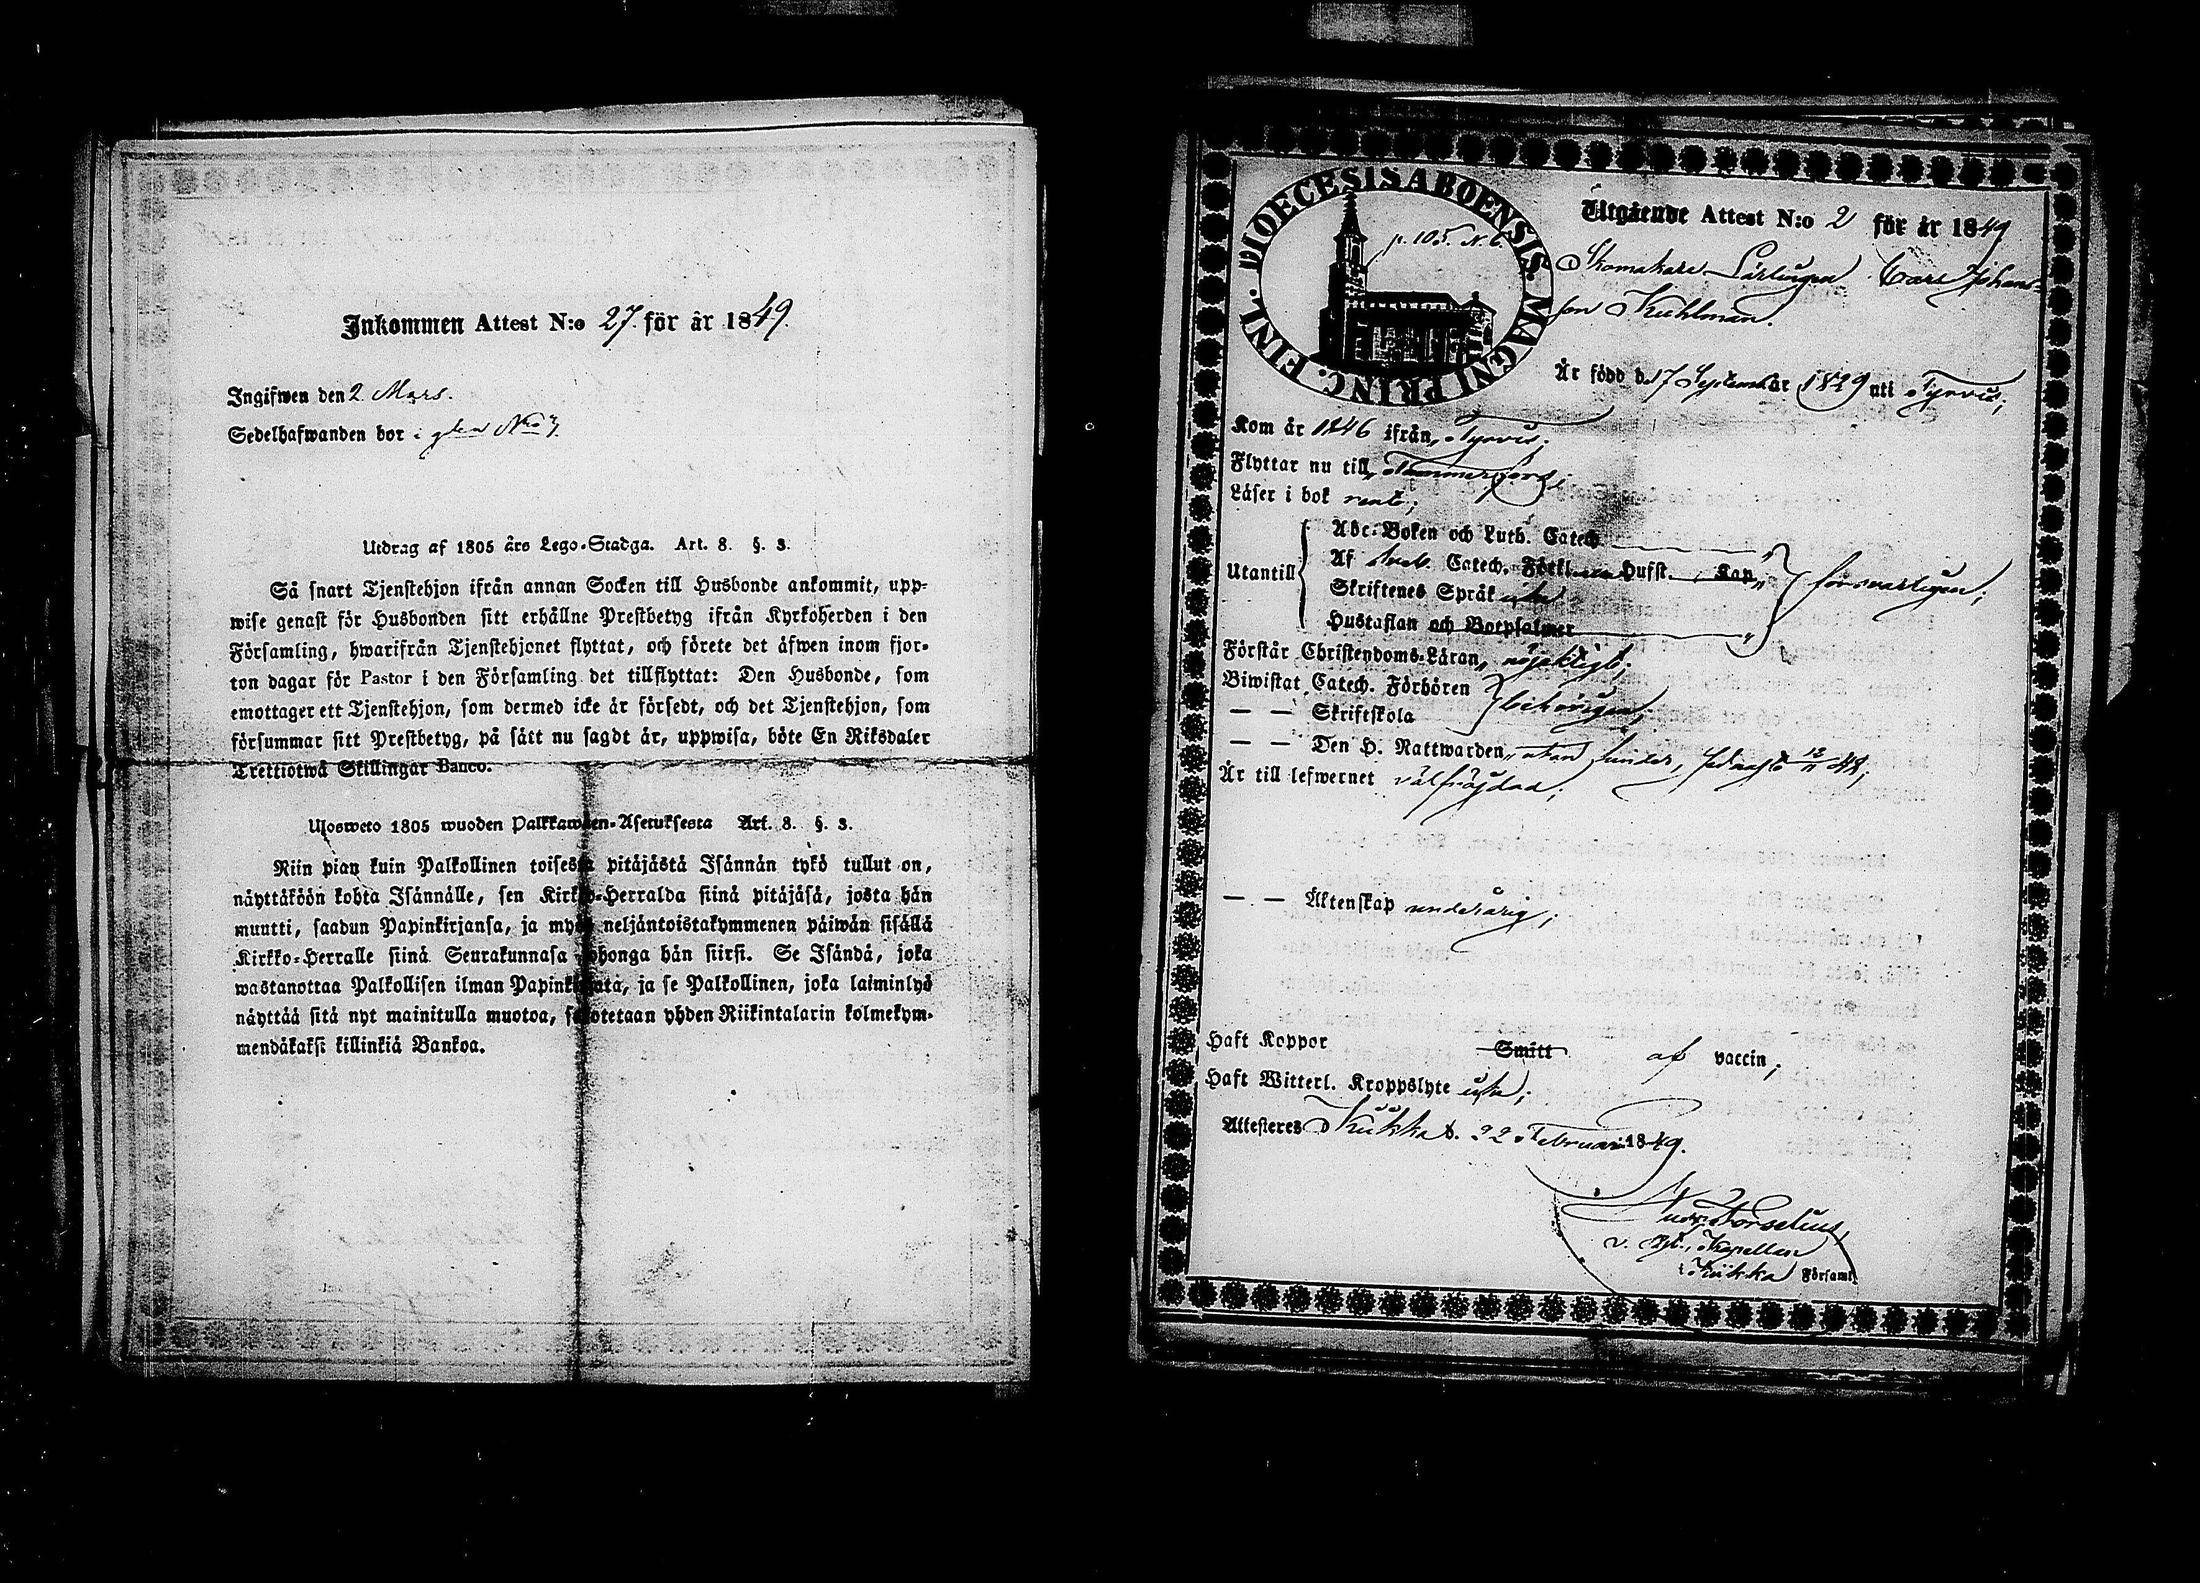 Inkommen Attest N:o 27. för år 1849.
Ingifwen den 2 Mars.
Sedelhafwanden bor i
Utdrag af 1805 års Lego-Stadga. Art. 8. §. 3.
Så snart Tjenstehjon ifrån annan Socken till Husbonde ankommit, upp-
wise genast för Husbonden sitt erhållne Prestbetyg ifrån Kyrkoherden i den
Församling, hwarifrån Tjenstehjonet flyttat, och förete det äfwen inom fjor-
ton dagar för Pastor i den Församling det tillflyttat: Den Husbonde, som
emottager ett Tjenstehjon, som dermed icke är försedt, och det Tjenstehjon, som
försummar sitt Prestbetyg, på sätt nu sagdt är, uppwisa, böte En Riksdaler
Trettiotwå Skillingar Banco.
Ulosweto 1805 wuoden Palkkawäen-Asetuksesta Art. 8. §. 3.
Niin pian kuin Palkollinen toisesta pitäjästä Isännän tykö tullut on,
näyttäköön kohta Isännälle, sen Kirkko-Herralda siinä pitäjäsä, josta hän
muutti, saadun Papinkirjansa, ja myös neljäntoistakymmenen päiwän sisällä
Kirkko-Herralle siinä Seurakunnasa johonga hän siirsi. Se Isändä, joka
wastanottaa Palkollisen ilman Papinkirjata, ja se Palkollinen, joka laiminlyö
näyttää sitä nyt mainitulla muotoa, sakotetaan yhden Riikintalarin kolmekym-
mendäkaksi killinkiä Bankoa.
DIOECESIS ABOENSIS. MAGNI PRINC. FINL.
p. 105. N. 6
Utgående Attest N:o 2 för år 1849
Skomakare Lärlingen Carl Johans-
son Kuhlman.
Är född d. 17 September år 1829 uti Tyrvis;
Kom år 1846 ifrån Tyrvis;
Flyttar nu till Tammerfors;
Läser i bok rent;
Utantill
Abc-Boken och Luth. Catech.
Af Catech. Förkl. Hufst. Kap.
Skriftenes Språk utan
Hustaflan och Botpsalmer
försvarligen;
Förstår Christendoms-Läran nöjaktigt;
Biwistat Catech. Förhören
— — Skriftskola
behörigen;
— — Den H. Nattwarden utan hinder, sednast 12/11 48;
Är till lefwernet välfräjdad;
— — Äktenskap underårig;
Haft Koppor Smitt af vaccin;
Haft Witterl. Kroppslyte utan;
Attesteres Kiikka d. 22 Februari 1849.
Forselius,
v. Kapellan
i Kiikka Församl.